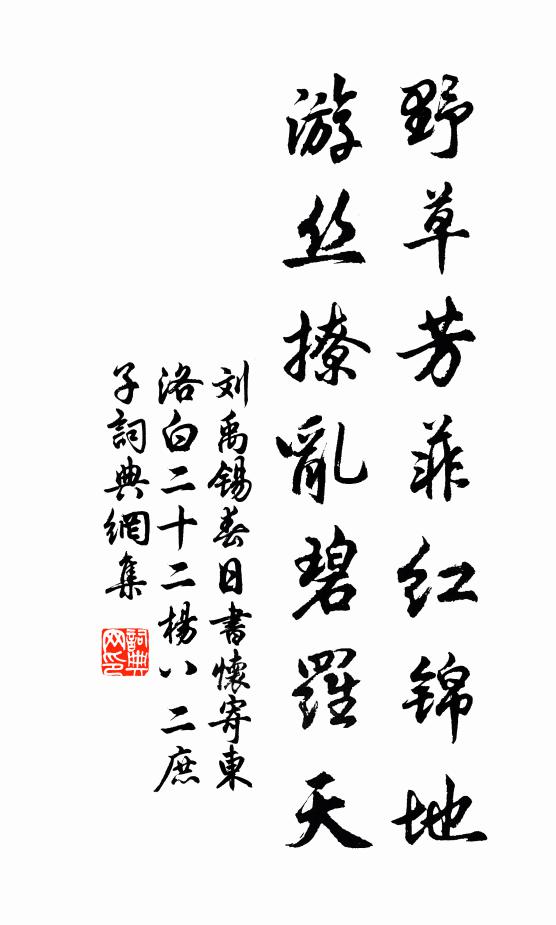 野草芳菲红锦地
游丝撩亂碧羅天
刘禹锡春日書懷寄東
洛白二十二楊八二庶
子詞典網集
詞典网印